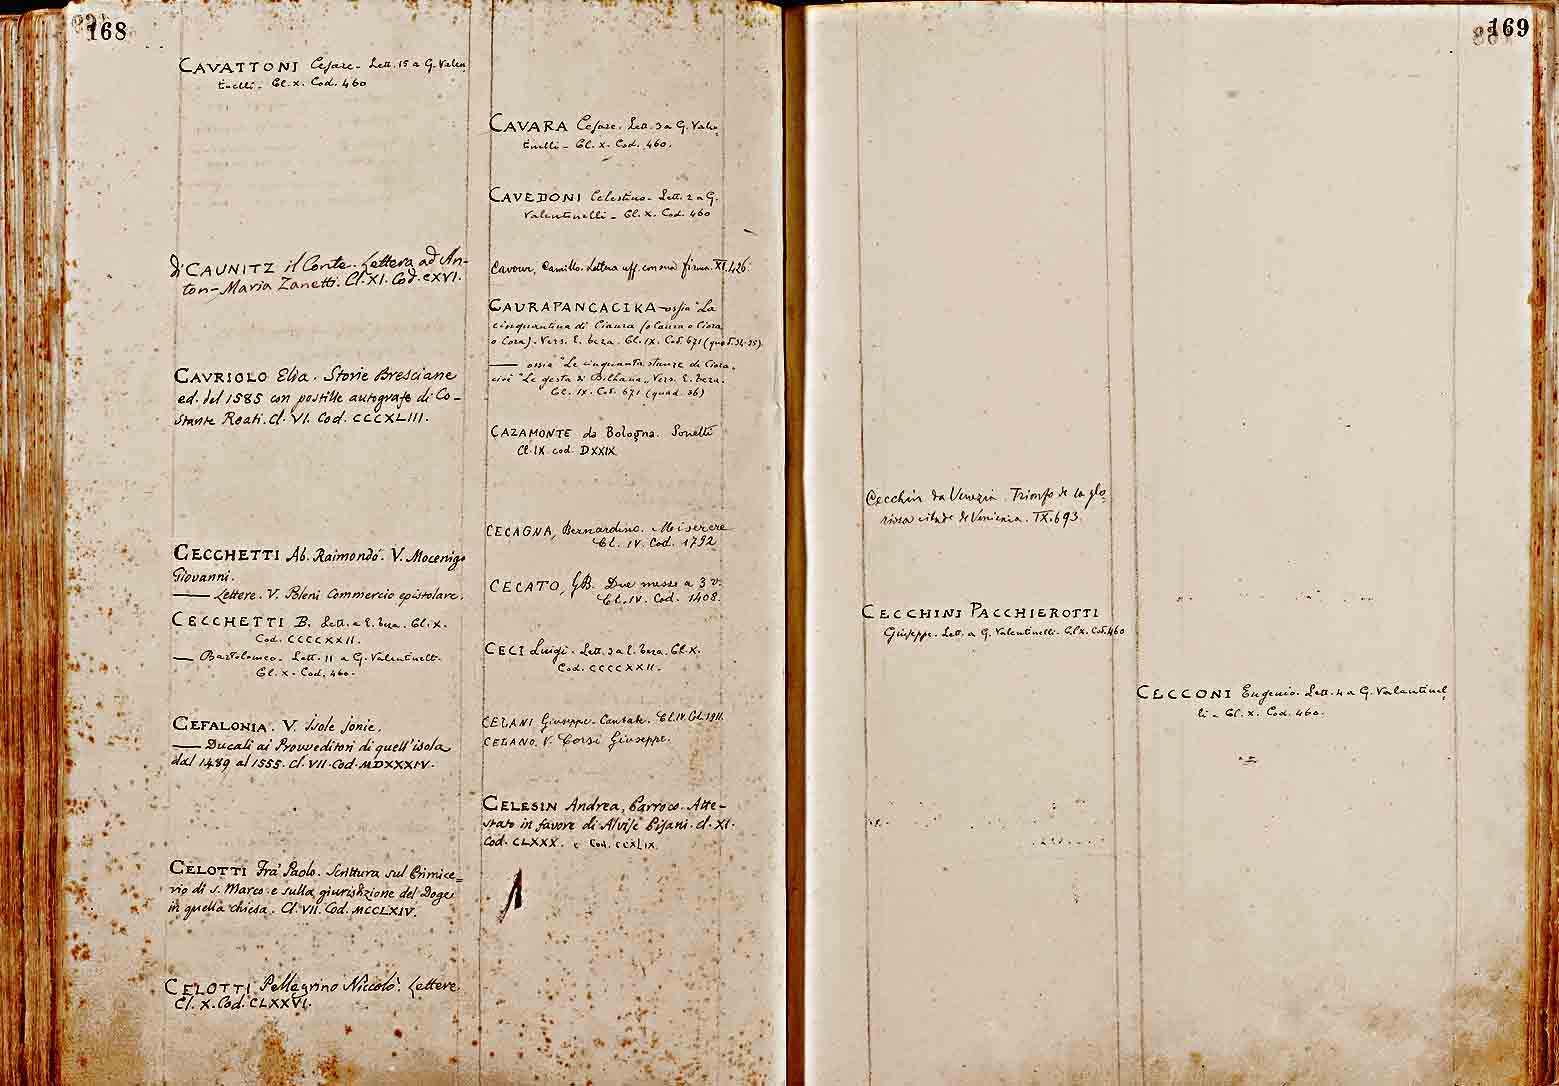 168
CAVATTONI Cesare - Lett. 15 a G. Valen
tinelli - Cl. X. Cod. 460
di CAUNITZ il Conte. Lettera ad An-
ton-Maria Zanetti. Cl. XI. Cod. CXVI.
CAVRIOLO Elia. Storie Bresciane
ed. del 1585 con postille autografe di Co-
stante Roati. Cl. VI. Cod. CCCXLIII.
CECCHETTI Ab. Raimondo. V. Mocenigo
Giovanni.
—— Lettere. V. Poleni Commercio epistolare.
CECCHETTI B. Lett. a E. Teza. Cl. X.
Cod. CCCCXXII.
— Bartolomeo - Lett. 11 a G. Valentinelli.
Cl. X - Cod. 460 -
CEFALONIA. V. Isole Jonie.
—— Ducali ai Provveditori di quell'isola
dal 1489 al 1555. Cl. VII. Cod. MDXXXIV.
CELOTTI Fra' Paolo. Scrittura sul Primice=
rio di S. Marco e sulla giurisdizione del Doge
in quella chiesa. Cl. VII. Cod. MCCLXIV.
CELOTTI Pellegrino Niccolò. Lettere
Cl. X. Cod. CLXXVI.
CAVARA Cesare. Lett. 3 a G. Valen
tinelli - Cl. X. Cod. 460.
CAVEDONI Celestino - Lett. 2 a G.
Valentinelli - Cl. X. Cod. 460
Cavour, Camillo. Lettera uff. con sua firma. XI. 426.
CAURAPANCACIKA - ossia "La
cinquantina di Ciaura (o Caura o Ciora
o Cora). Vers. E. Teza. Cl. IX. Cod. 671 (quad. 34-35).
—— ossia "Le cinquanta stanze di Ciora,
cioè "Le gesta di Bilhana,, Vers. E. Teza.
Cl. IX. Cod. 671 (quad. 36)
CAZAMONTE da Bologna. Sonetti
Cl. IX. cod. DXXIX
CECAGNA, Bernardino. Miserere
Cl. IV. Cod. 1792
CECATO, GB. Due messe a 3 v.
Cl. IV. Cod. 1408.
CECI Luigi. Lett. 3 a E. Teza. Cl. X.
Cod. CCCCXXII.
CELANI Giuseppe - Cantate. Cl. IV. Cod. 1911.
CELANO. V. Corsi Giuseppe.
CELESIN Andrea, Parroco. Atte-
stato in favore di Alvise Pisani. Cl. XI.
Cod. CLXXX. e Cod. CCXLIX.
169
Cecchin da Venezia. Trionfo de la glo
riosa citade di Venienia. IX. 693.
CECCHINI PACCHIEROTTI
Giuseppe. Lett. a G. Valentinelli - Cl. X. Cod. 460
CECCONI Eugenio. Lett. 4 a G. Valentinel
li - Cl. X. Cod. 460.